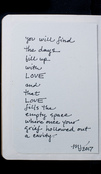 you will find
the days
fill up
with
LOVE
and
that
LOVE
fills the
empty space
where once your
grief hollowed out
a cavity